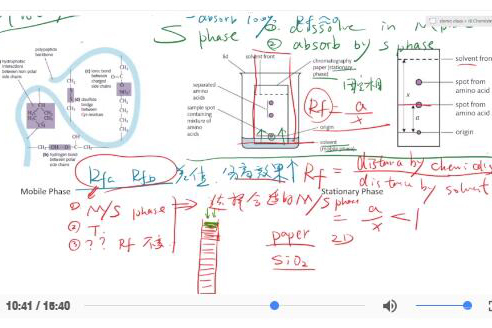 - absorb 100% Rf = 0
S phase / ① dissolve in M phase
② absorb by S phase
demo class - IB Chemistry
polypeptide backbone
hydrophobic interactions between non-polar side chains
ionic bond between charged side chains
disulfide bridge between Cys residues
hydrogen bond between polar side chains
lid
solvent front
chromatography paper (stationary phase)
固定相
separated amino acids
sample spot containing mixture of amino acids
origin
solvent (mobile phase)
Rf = a / x
solvent front
spot from amino acid
spot from amino acid
origin
x
a
Rfa Rfb 差值, 分离效果↑
Rf = distance by chemicals / distance by solvent
Mobile Phase
Stationary Phase
① M/S phase
② T.
③ ?? Rf
⇒ 选择合适的 M/S phase
= a / x < 1
paper 2D
SiO2
10:41 / 15:40